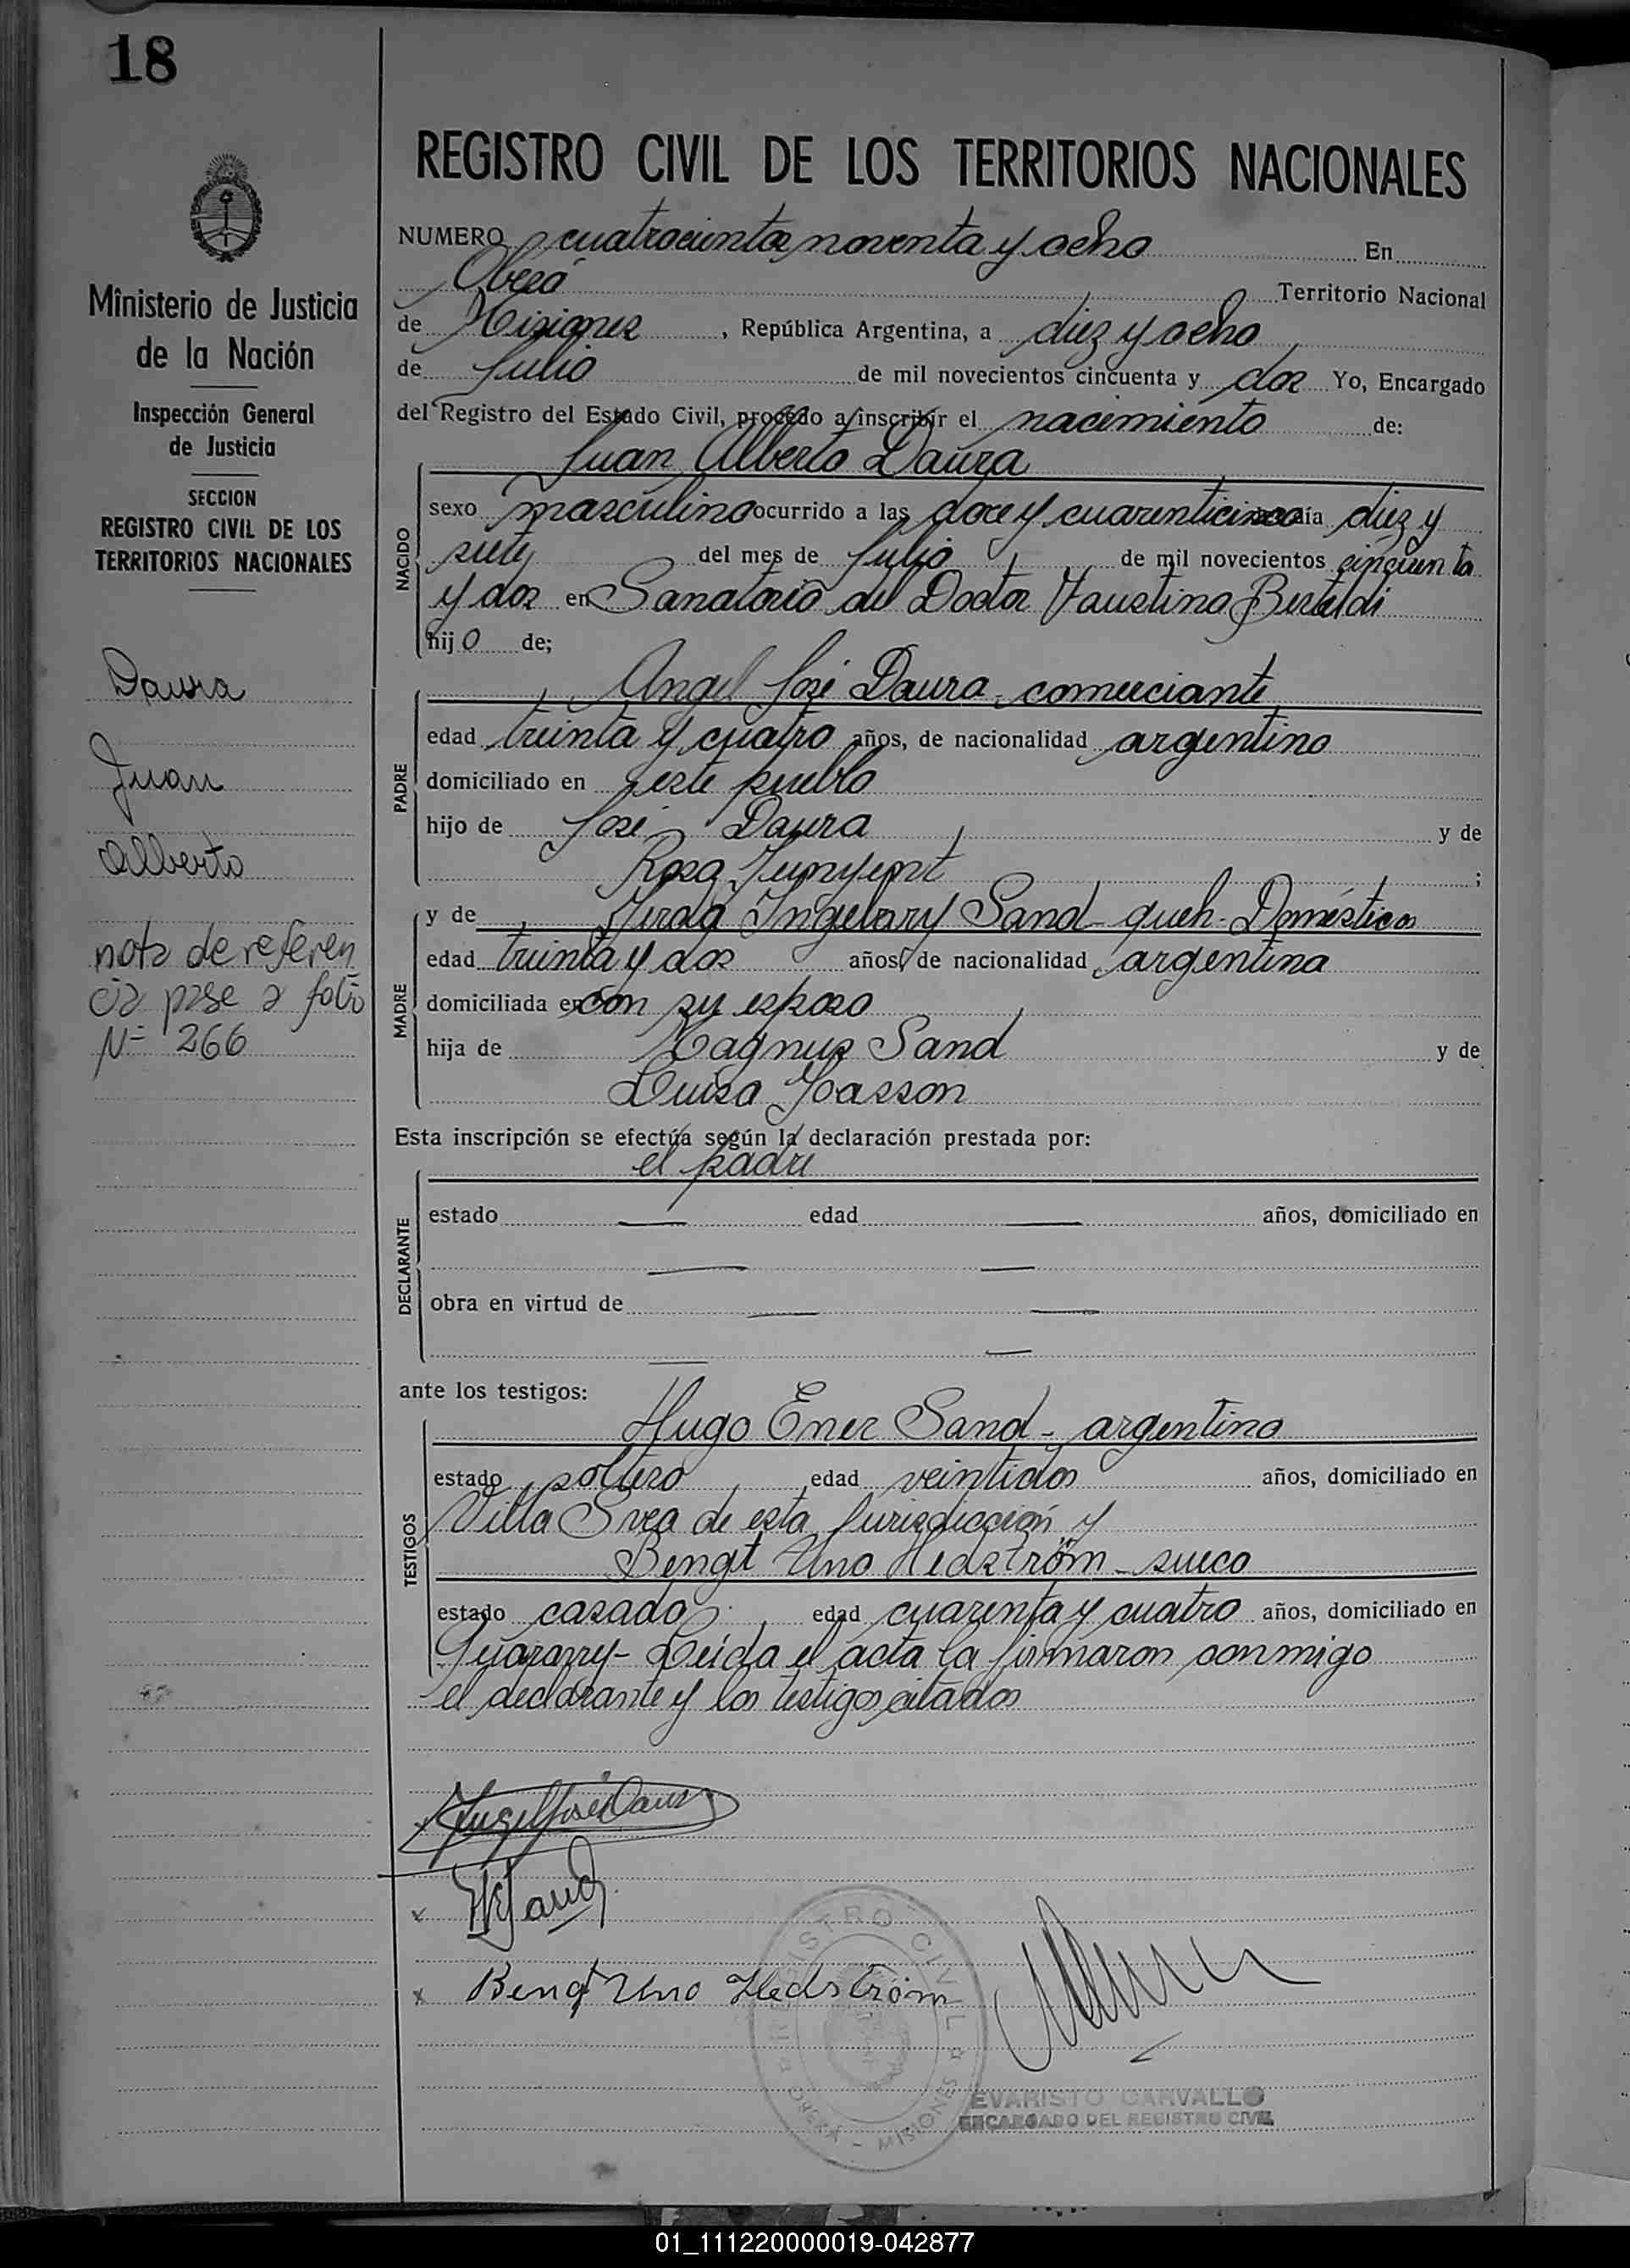 18
Ministerio de Justicia
de la Nación
Inspección General
de Justicia
SECCION
REGISTRO CIVIL DE LOS
TERRITORIOS NACIONALES
Daura
Juan
Alberto
nota de referen
cia pase a folio
Nº 266
REGISTRO CIVIL DE LOS TERRITORIOS NACIONALES
NUMERO cuatrocientos noventa y ocho En
Oberá Territorio Nacional
de Misiones, República Argentina, a diez y ocho
de Julio de mil novecientos cincuenta y dos Yo, Encargado
del Registro del Estado Civil, procedo a inscribir el nacimiento de:
Juan Alberto Daura
NACIDO
sexo masculino ocurrido a las doce y cuarenticinco día diez y
siete del mes de Julio de mil novecientos cincuenta
y dos en Sanatorio del Doctor Faustino Berteldi
hijo de;
Angel José Daura - comerciante
PADRE
edad treinta y cuatro años, de nacionalidad argentino
domiciliado en este pueblo
hijo de José Daura y de
Rosa Junyent;
MADRE
y de Ingeborg Sand - queh. Domésticos
edad treinta y dos años, de nacionalidad argentina
domiciliada en con su esposo
hija de Magnus Sand y de
Luisa
Esta inscripción se efectúa según la declaración prestada por:
el padre
DECLARANTE
estado — edad — años, domiciliado en
— —
obra en virtud de — —
— —
ante los testigos:
TESTIGOS
Hugo Ener Sand - argentino
estado soltero edad veintidos años, domiciliado en
Villa Svea de esta Jurisdicción y
Bengt Uno Hedström - sueco
estado casado, edad cuarenta y cuatro años, domiciliado en
Guarany - Leída el acta la firmaron conmigo
el declarante y los testigos citados
Angel José Daura
x HESand
x Bengt Uno Hedström
REGISTRO CIVIL
OBERA - MISIONES
EVARISTO CARVALLO
ENCARGADO DEL REGISTRO CIVIL
01_111220000019-042877